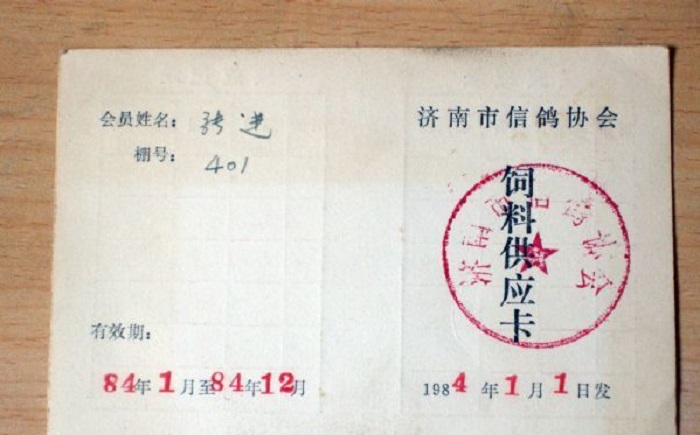 会员姓名: 张进
棚号: 401
有效期:
84年1月至84年12月
济南市信鸽协会
饲料供应卡
济南市信鸽协会
1984年1月1日发